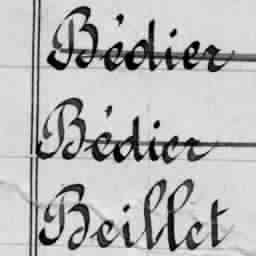 Bédier
Bédier
Beillet